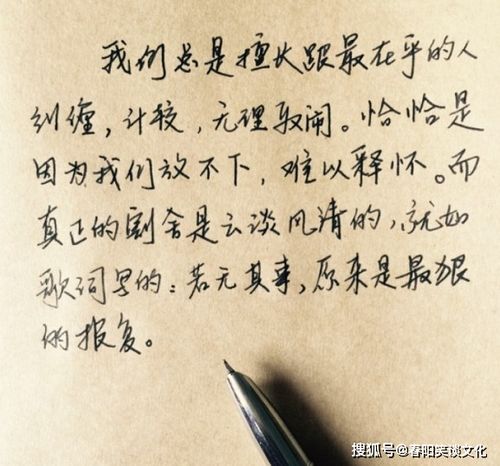 我们总是擅长跟最在乎的人
纠缠，计较，无理取闹。恰恰是
因为我们放不下，难以释怀。而
真正的割舍是云谈风清的，就如
歌词里的：若无其事，原来是最狠
的报复。
搜狐号@春阳笑谈文化